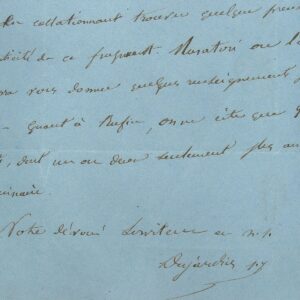 en collationnant trouver quelque
de ce fragment. Muratori ou l
vous donner quelques renseignements
- Quant à Rufin, on ne cite que
, dont un ou deux seulement plus au
Votre dévoué Serviteur en
Dujardin